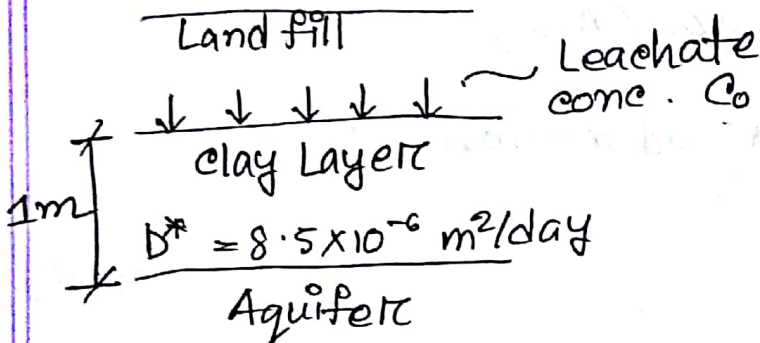 Land fill
Leachate
conc. Co
Clay Layer
1m
D* = 8.5×10⁻⁶ m²/day
Aquifer